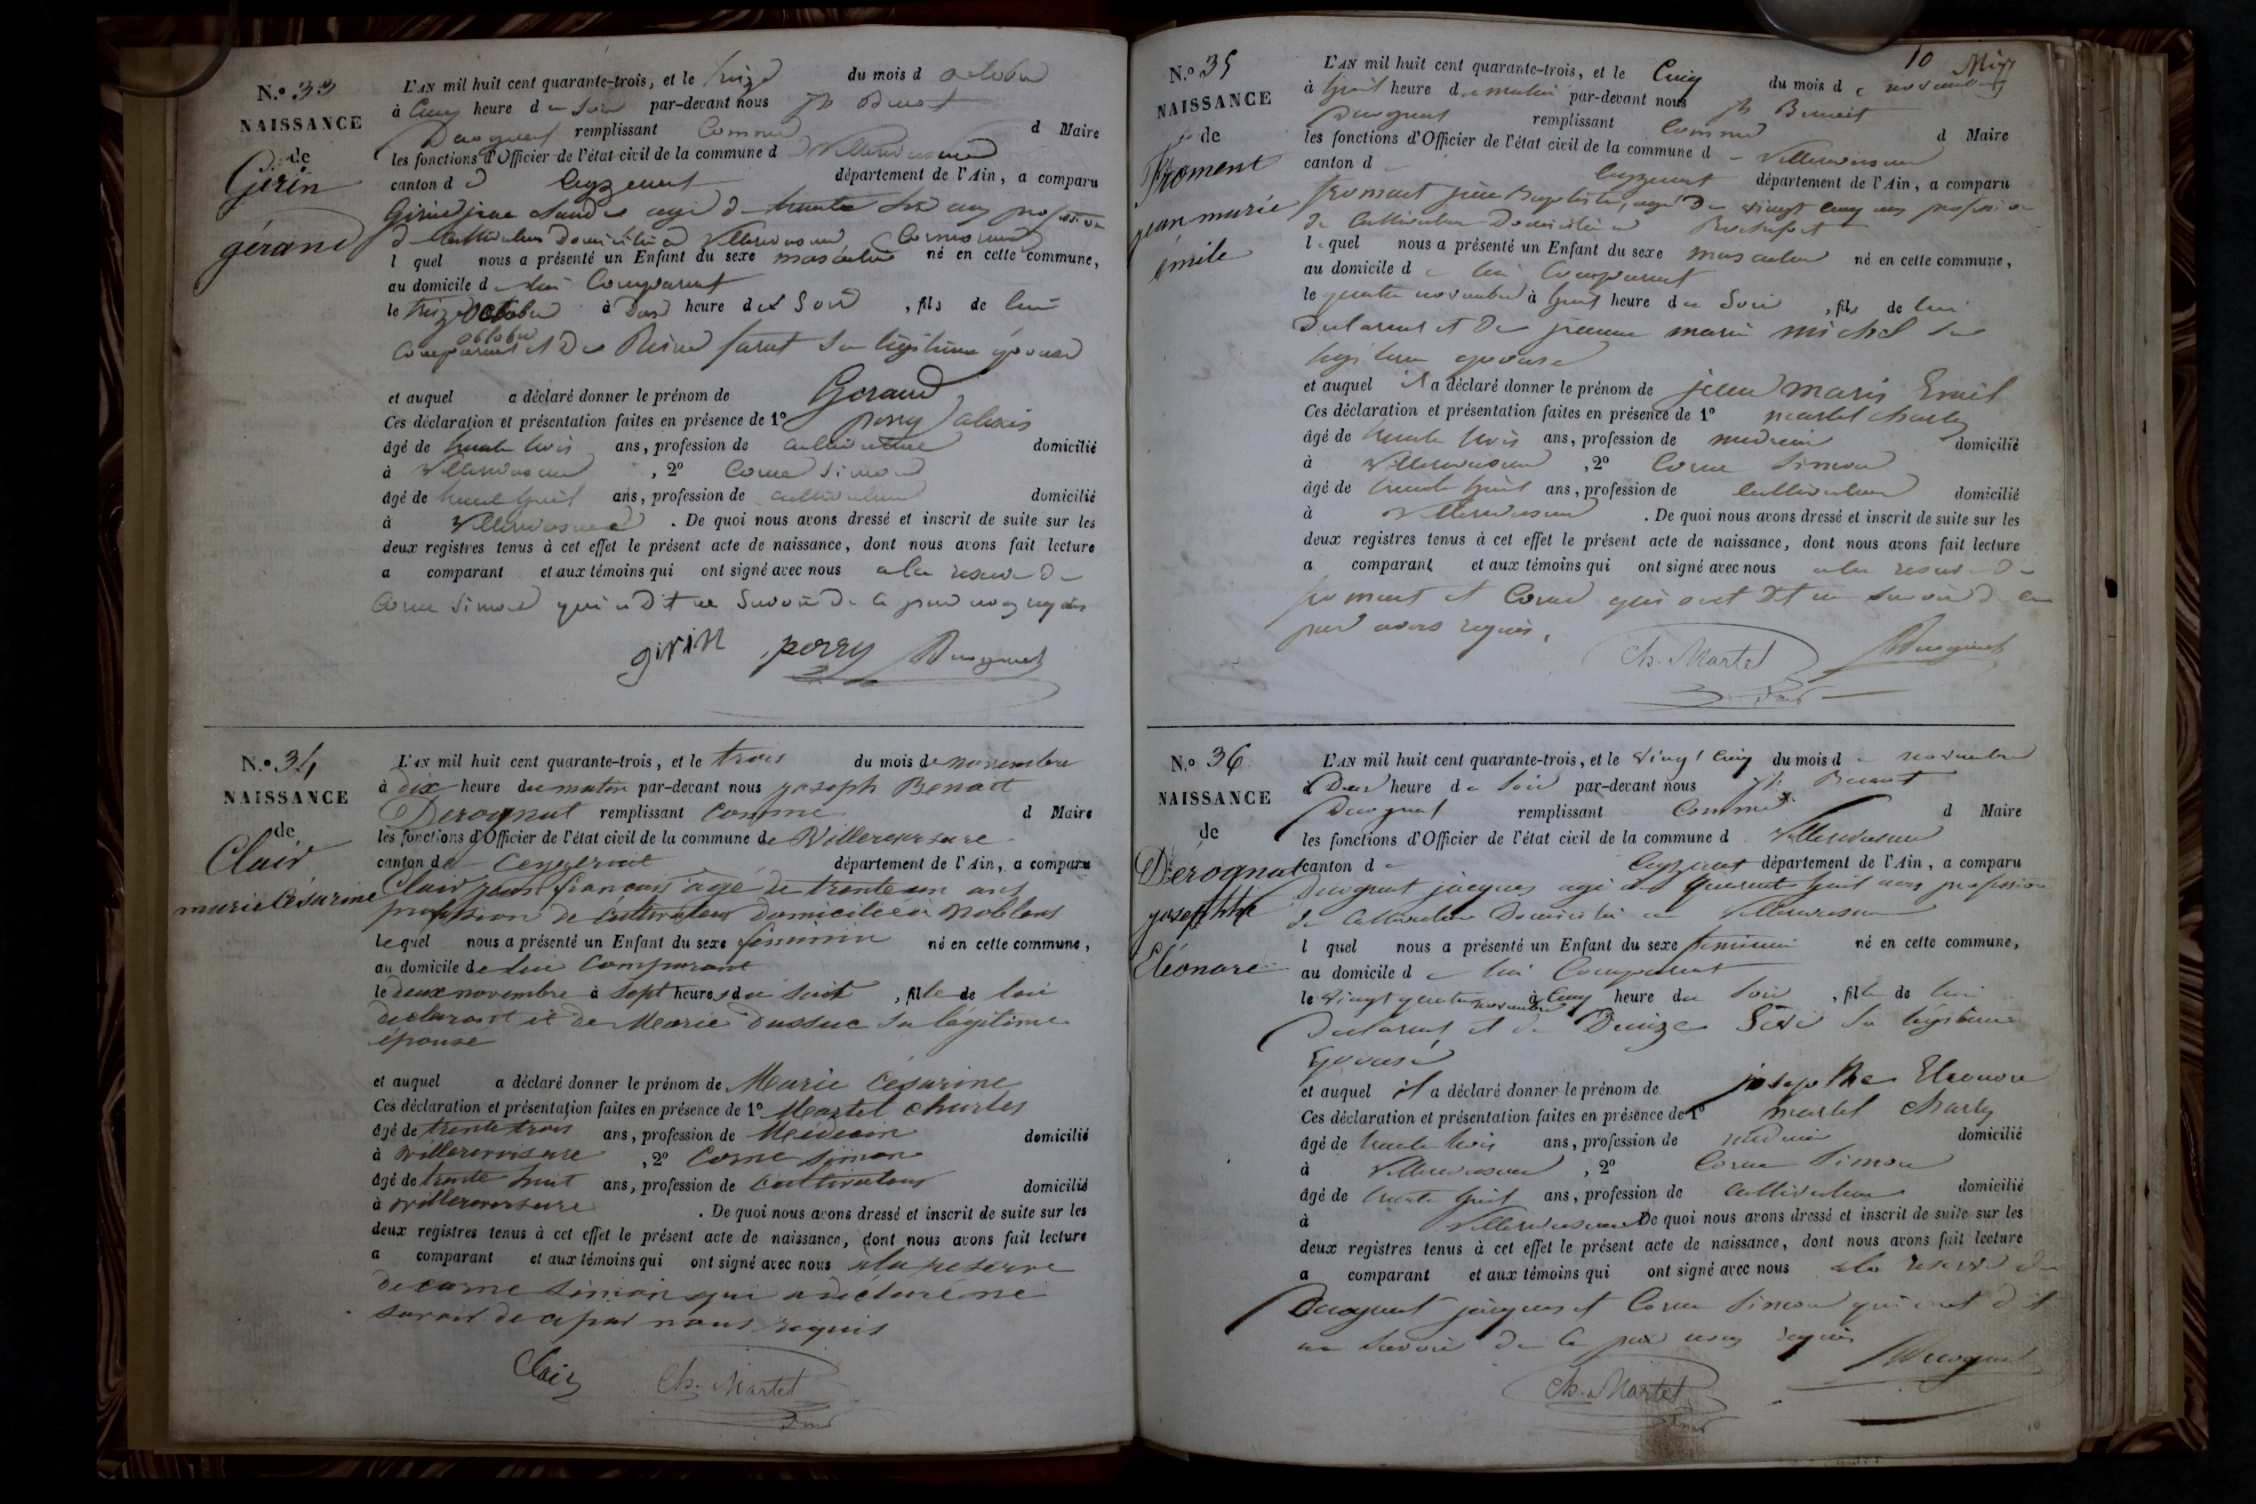 N.o 33
NAISSANCE
de
Girin
gérand
L'AN mil huit cent quarante-trois, et le treize du mois d octobre
à Cinq heure du Soir par-devant nous Jh Benoit
Derognat remplissant Comme d Maire
les fonctions d'Officier de l'état civil de la commune d Villereversure
canton d Ceyzeriat département de l'Ain, a comparu
Girin âgé de trente ans profession
de Cultivateur Domicilié à Villereversure
l quel nous a présenté un Enfant du sexe masculin né en cette commune,
au domicile de lui Comparant
le treize octobre à Deux heure du Soir, fils de lui
octobre
Comparant et De sa légitime épouse
et auquel a déclaré donner le prénom de Gerand
Ces déclaration et présentation faites en présence de 1o perry alexis
âgé de trente trois ans, profession de cultivateur domicilié
à Villereversure, 2o Corne Simon
âgé de trente huit ans, profession de cultivateur domicilié
à Villereversure. De quoi nous avons dressé et inscrit de suite sur les
deux registres tenus à cet effet le présent acte de naissance, dont nous avons fait lecture
a comparant et aux témoins qui ont signé avec nous a la reserve De
Corne Simon qui a Dit ne Savoir De ce par nous requis
girin perry Derognat
N.o 34
NAISSANCE
de
Clair
marie Césarine
L'AN mil huit cent quarante-trois, et le trois du mois de novembre
à dix heure du matin par-devant nous joseph Benoit
Derognat remplissant comme d Maire
les fonctions d'Officier de l'état civil de la commune de Villereversure
canton de Ceyzeriat département de l'Ain, a comparu
Clair jean françois agé de trente un ans
profession de Cultivateur domicilié à noblens
lequel nous a présenté un Enfant du sexe féminin né en cette commune,
au domicile de lui Comparant
le deux novembre à sept heures du soir, fille de lui
declarant et de Marie Dussuc sa légitime
épouse
et auquel a déclaré donner le prénom de Marie Césarine
Ces déclaration et présentation faites en présence de 1o Martel charles
âgé de trente trois ans, profession de Médecin domicilié
à villereversure, 2o Corne simon
âgé de trente huit ans, profession de Cultivateur domicilié
à villereversure. De quoi nous avons dressé et inscrit de suite sur les
deux registres tenus à cet effet le présent acte de naissance, dont nous avons fait lecture
a comparant et aux témoins qui ont signé avec nous a la reserve
de corne simon qui a déclaré ne
savoir de ce par nous requis
Clair Ch. Martel
10
N.o 35
NAISSANCE
de
Froment
jean marie
émile
L'AN mil huit cent quarante-trois, et le Cinq du mois de novembre
à huit heure du matin par-devant nous Jh Benoit
Derognat remplissant Comme d Maire
les fonctions d'Officier de l'état civil de la commune de Villereversure
canton d Ceyzeriat département de l'Ain, a comparu
froment jean Baptiste, agé De vingt cinq ans profession
de Cultivateur Domicilié à Rochefort
lequel nous a présenté un Enfant du sexe masculin né en cette commune,
au domicile de lui Comparant
le quatre novembre à huit heure du Soir, fils de lui
Declarant et De jeanne marie michel sa
legitime epouse
et auquel il a déclaré donner le prénom de jean marie Emile
Ces déclaration et présentation faites en présence de 1o martel charles
âgé de trente trois ans, profession de médecin domicilié
à Villereversure, 2o Corne Simon
âgé de trente huit ans, profession de Cultivateur domicilié
à Villereversure. De quoi nous avons dressé et inscrit de suite sur les
deux registres tenus à cet effet le présent acte de naissance, dont nous avons fait lecture
a comparant et aux témoins qui ont signé avec nous a la reserve De
froment et Corne qui ont Dit ne Savoir de ce
par nous requis.
Ch. Martel Derognat
N.o 36
NAISSANCE
de
Dérognat
josephthe
Éléonore
L'AN mil huit cent quarante-trois, et le vingt cinq du mois de novembre
à Deux heure du Soir par-devant nous Jh Benoit
Derognat remplissant Comme d Maire
les fonctions d'Officier de l'état civil de la commune d Villereversure
canton de Ceyzeriat département de l'Ain, a comparu
Derognat jacques agé de quarante huit ans profession
de Cultivateur Domicilié à Villereversure
l quel nous a présenté un Enfant du sexe feminin né en cette commune,
au domicile de lui Comparant
le vingt quatre novembre à Cinq heure du Soir, fille de lui
Declarant et de Denize sa legitime
Epouse
et auquel il a déclaré donner le prénom de josephthe Eleonore
Ces déclaration et présentation faites en présence de 1o martel charles
âgé de trente trois ans, profession de médecin domicilié
à Villereversure, 2o Corne Simon
âgé de trente huit ans, profession de Cultivateur domicilié
à Villereversure De quoi nous avons dressé et inscrit de suite sur les
deux registres tenus à cet effet le présent acte de naissance, dont nous avons fait lecture
a comparant et aux témoins qui ont signé avec nous a la reserve de
Derognat jacques et Corne Simon qui ont dit
ne Savoir De Ce par nous requis
Ch. Martel Derognat